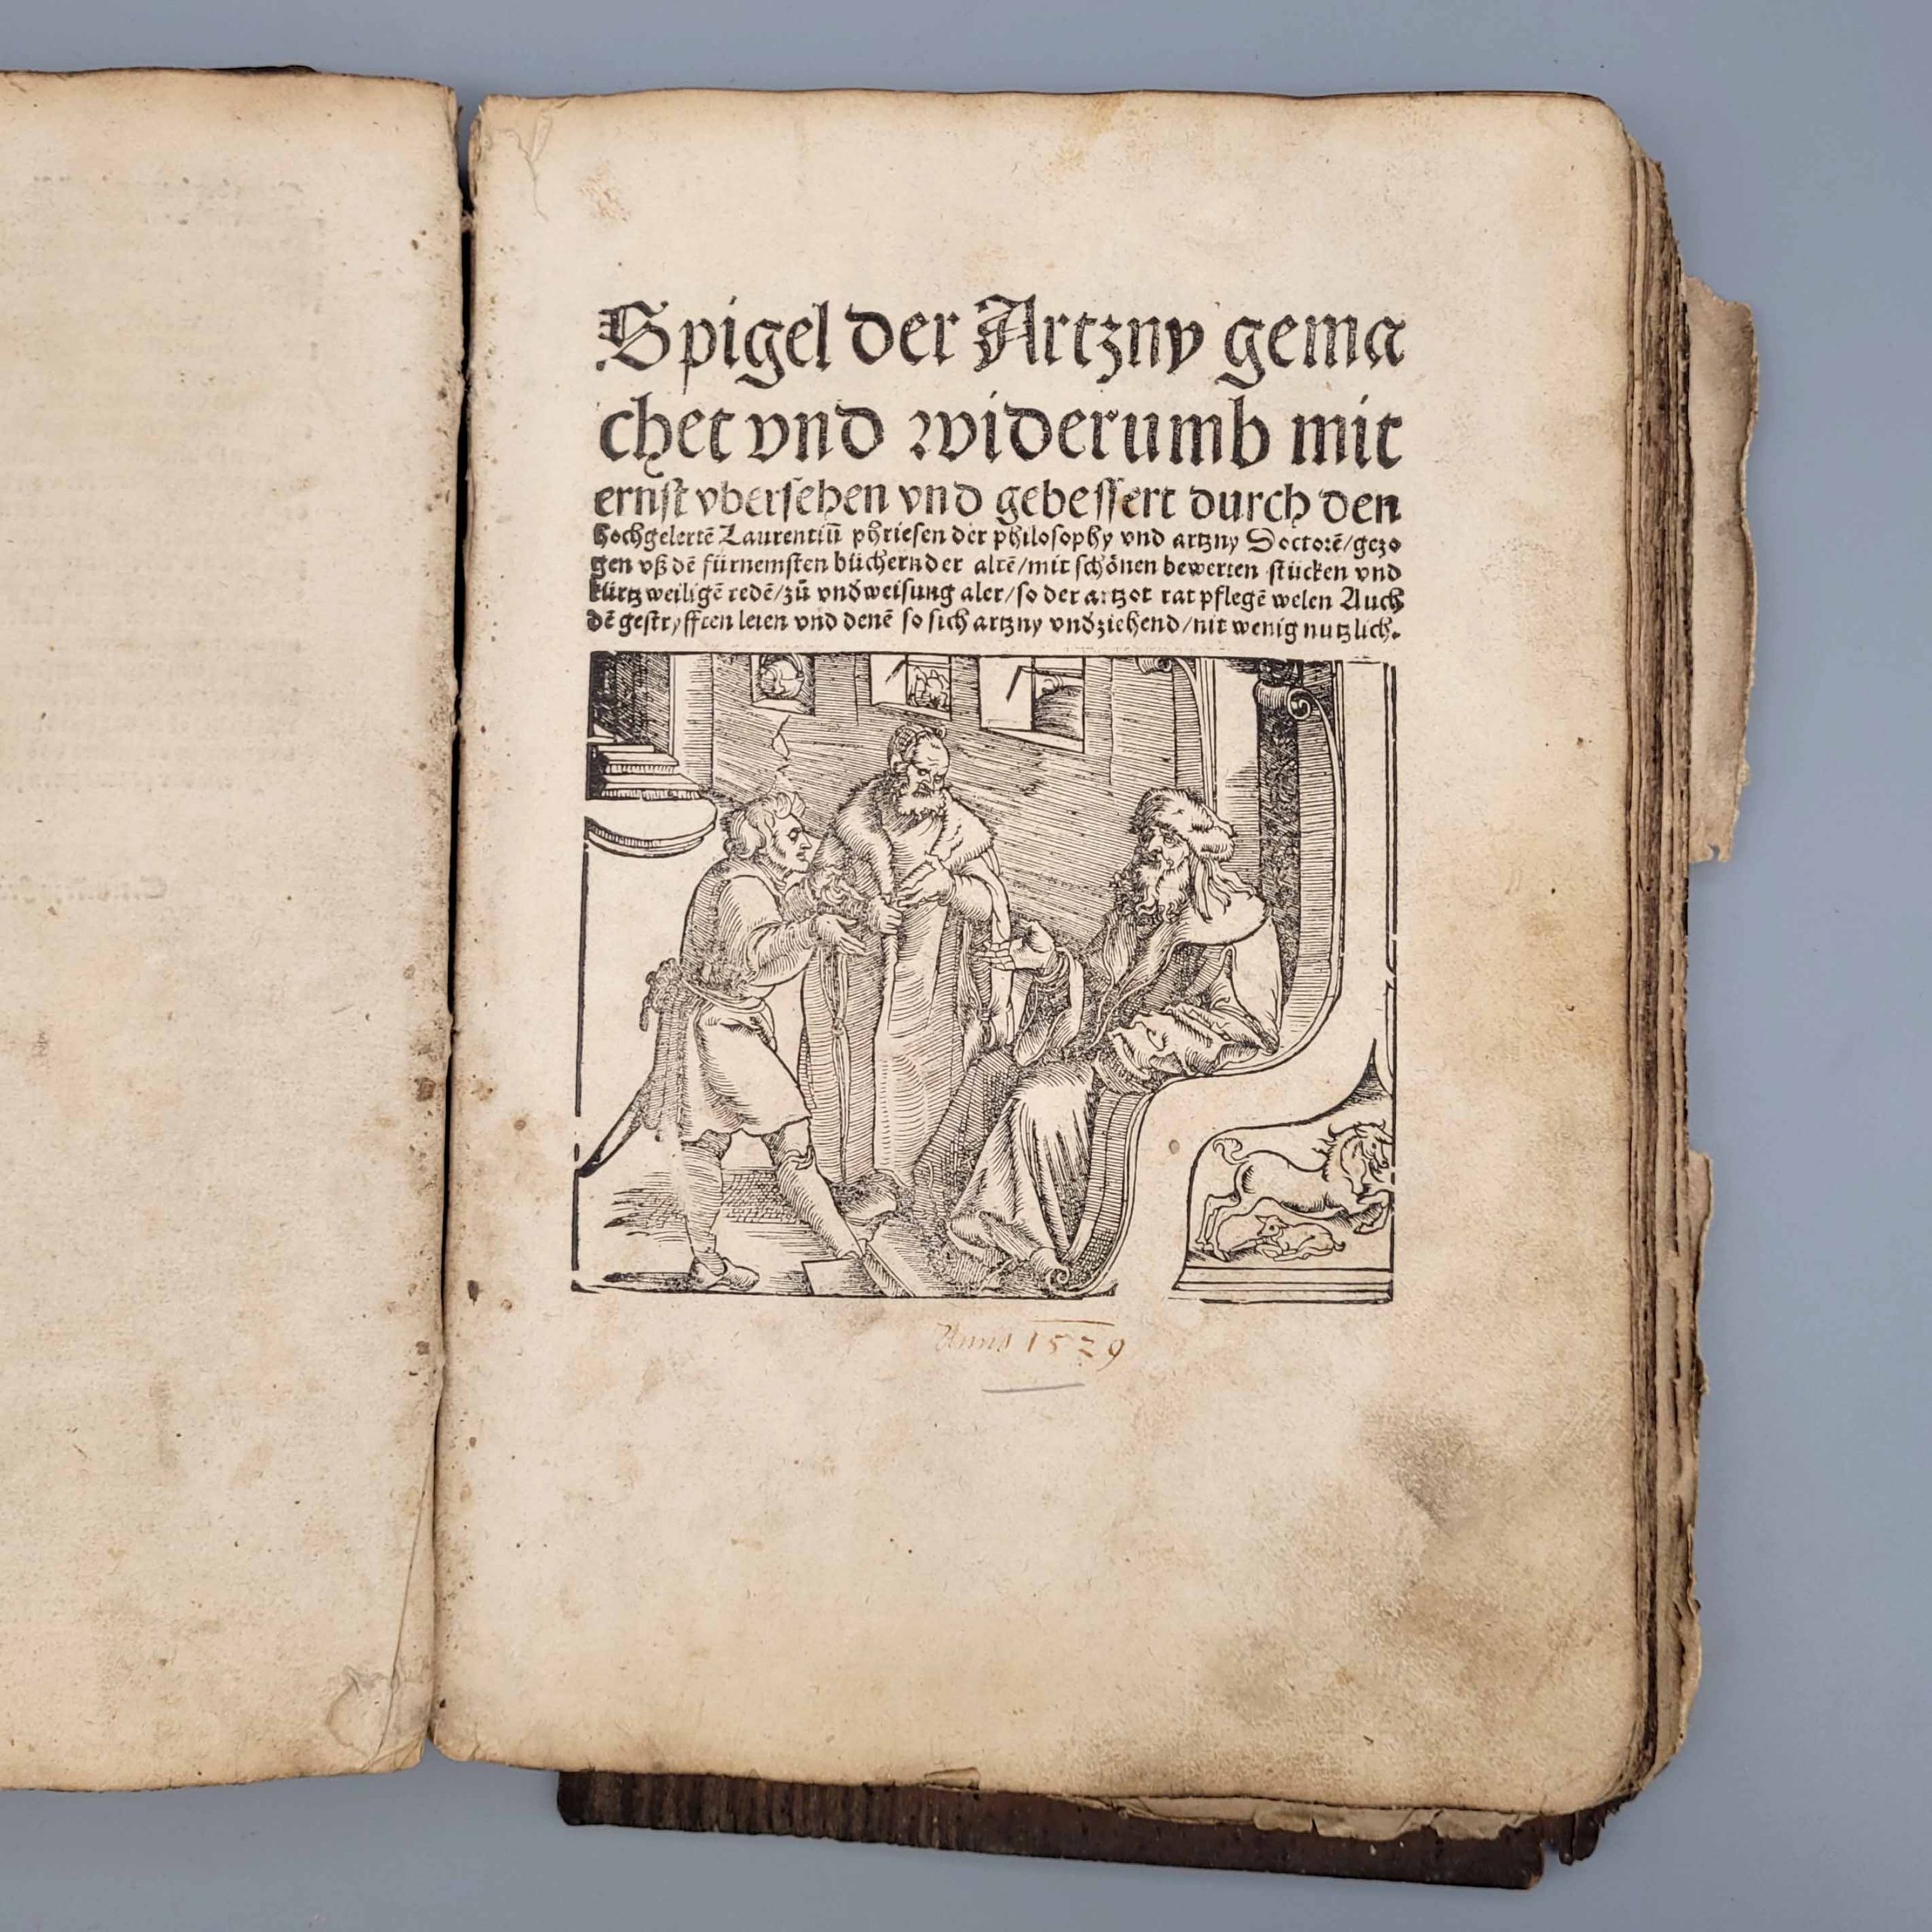 Spigel der Artzny gema
chet vnd widerumb mit
ernſt vberſehen vnd gebeſſert durch den
hochgelertē Laurentiū phrieſen der philoſophy vnd artzny Doctorē/gezo
gen vß dē fürnemſten büchern der altē/mit ſchönen bewerten ſtücken vnd
kürtzweiligē redē/zů vnd̕weiſung aler/ſo der artzot rat pflegē welen Auch
dē geſtryfften leien vnd denē ſo ſich artzny vnd̕ziehend/nit wenig nutzlich.
Anno 1529